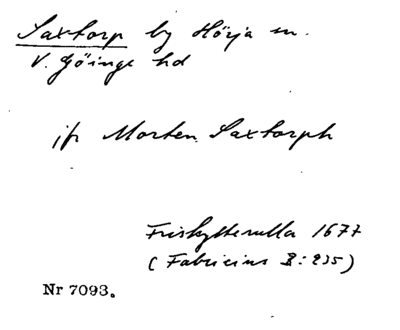 Saxtorp by Hörja sn.
V. Göinge hd
jfr Morten Saxtorph
Friskytterulla 1677
(Fabricius II: 235)
Nr 7093.